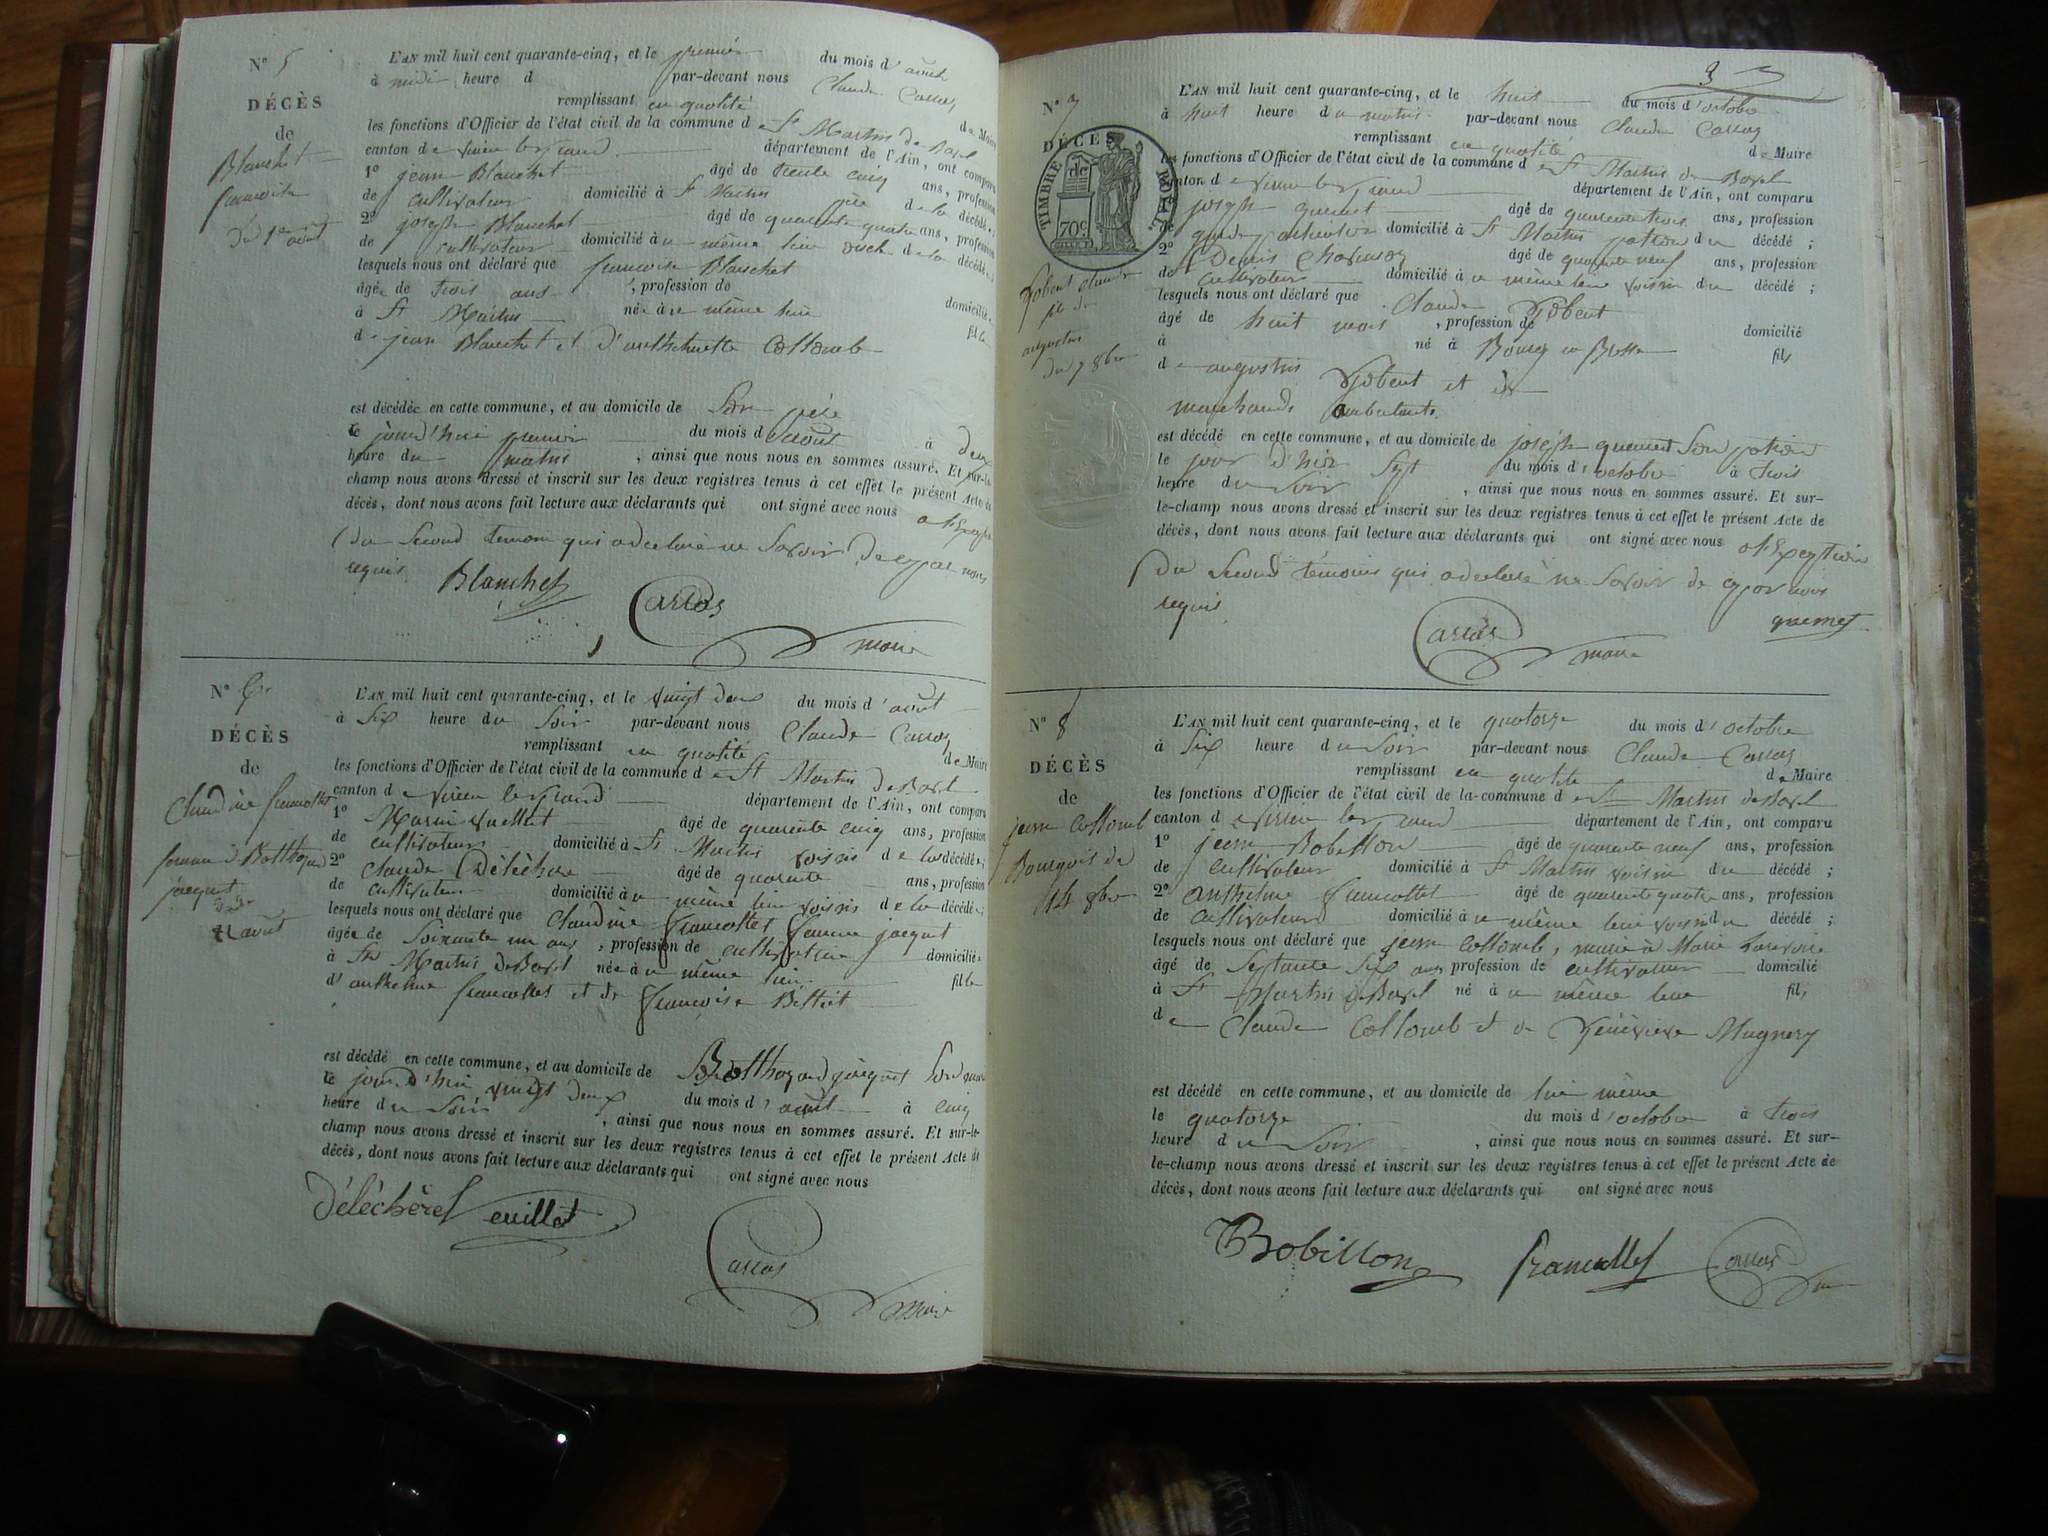 N° 5
DÉCÈS
de
Blanchet
francoise
du 1er août
L'AN mil huit cent quarante-cinq, et le premier du mois d'août
à midi heure d par-devant nous Claude Carraz
remplissant en qualité de Maire
les fonctions d'Officier de l'état civil de la commune de St Martin de Bavel
canton de virieu le grand département de l'Ain, ont comparu
1° jean Blanchet âgé de trente cinq ans, profession
de cultivateur domicilié à St Martin père de la décédée;
2° joseph Blanchet âgé de quarante quatre ans, profession
de cultivateur domicilié à u même lieu oncle de la décédée;
lesquels nous ont déclaré que francoise Blanchet
âgée de trois ans, profession de domiciliée
à St Martin née à u même lieu fille
de jean Blanchet et d'anthelmette Collomb
est décédée en cette commune, et au domicile de Son père
le jourd'hui premier du mois d'août à deux
heure du matin, ainsi que nous nous en sommes assuré. Et sur-le-
champ nous avons dressé et inscrit sur les deux registres tenus à cet effet le présent Acte de
décès, dont nous avons fait lecture aux déclarants qui ont signé avec nous
du Second temoin qui a declaré ne Savoir de ce
requis. Blanchet Carraz
maire
N° 6
DÉCÈS
de
Claudine francollet
femme à Botthoyard
jacquet
22
août
L'AN mil huit cent quarante-cinq, et le vingt deux du mois d'août
à Six heure du Soir par-devant nous Claude Carraz
remplissant en qualité de Maire
les fonctions d'Officier de l'état civil de la commune de St Martin de Bavel
canton de virieu le Grand département de l'Ain, ont comparu
1° Marin vuillet âgé de quarante cinq ans, profession
de cultivateur domicilié à St Martin voisin de la décédée;
2° Claude Délèchere âgé de quarante ans, profession
de cultivateur domicilié à u même lieu voisin de la décédée;
lesquels nous ont déclaré que Claudine francollet femme jacquet
âgée de Soixante un ans, profession de cultivatrice domiciliée
à St Martin de Bavel née à u même lieu fille
d'anthelme francollet et de francoise Billiet
est décédé en cette commune, et au domicile de Botthoyard jacquet Son mari
le jourd'hui vingt deux du mois d'août à cinq
heure du Soir, ainsi que nous nous en sommes assuré. Et sur-le-
champ nous avons dressé et inscrit sur les deux registres tenus à cet effet le présent Acte de
décès, dont nous avons fait lecture aux déclarants qui ont signé avec nous
Délécherel vuillet
Carraz
maire
3
N° 7
DÉCÈS
de
TIMBRE ROYAL
70c
Gobent claude
fils de
augustin
du 7 8bre
L'AN mil huit cent quarante-cinq, et le huit du mois d'octobre
à huit heure du matin par-devant nous Claude Carraz
remplissant en qualité de Maire
les fonctions d'Officier de l'état civil de la commune de St Martin de Bavel
canton de virieu le grand département de l'Ain, ont comparu
joseph quemet âgé de quarante trois ans, profession
de garde domicilié à St Martin patron du décédé;
2° Denis âgé de quarante neuf ans, profession
de cultivateur domicilié à u même lieu voisin du décédé;
lesquels nous ont déclaré que Claude Gobent
âgé de huit mois, profession de domicilié
à né à Bourg en Bresse fils
de augustin Gobent et de
marchands ambulants.
est décédé en cette commune, et au domicile de joseph quemet Son patron
le jour d'hier Sept du mois d'octobre à trois
heure du Soir, ainsi que nous nous en sommes assuré. Et sur-
le-champ nous avons dressé et inscrit sur les deux registres tenus à cet effet le présent Acte de
décès, dont nous avons fait lecture aux déclarants qui ont signé avec nous à l'Exception
du Second témoins qui a declaré ne Savoir de ce par nous
requis. quemet
Carraz
maire
N° 8
DÉCÈS
de
jean Collomb
Bourgois du
14 8bre
L'AN mil huit cent quarante-cinq, et le quatorze du mois d'octobre
à Six heure du Soir par-devant nous Claude Carraz
remplissant en qualité de Maire
les fonctions d'Officier de l'état civil de la commune de St Martin de Bavel
canton d virieu le grand département de l'Ain, ont comparu
1° jean Bobillon âgé de quarante neuf ans, profession
de cultivateur domicilié à St Martin voisin du décédé;
2° anthelme francollet âgé de quarante quatre ans, profession
de cultivateur domicilié à u même lieu voisin du décédé;
lesquels nous ont déclaré que jean Collomb, marié à Marie
âgé de Septante Six ans, profession de cultivateur domicilié
à St Martin de Bavel né à u même lieu fils
de Claude Collomb et de Généviève Mugnery
est décédé en cette commune, et au domicile de lui même
le quatorze du mois d'octobre à trois
heure du Soir, ainsi que nous nous en sommes assuré. Et sur-
le-champ nous avons dressé et inscrit sur les deux registres tenus à cet effet le présent Acte de
décès, dont nous avons fait lecture aux déclarants qui ont signé avec nous
Bobillon francollet Carraz